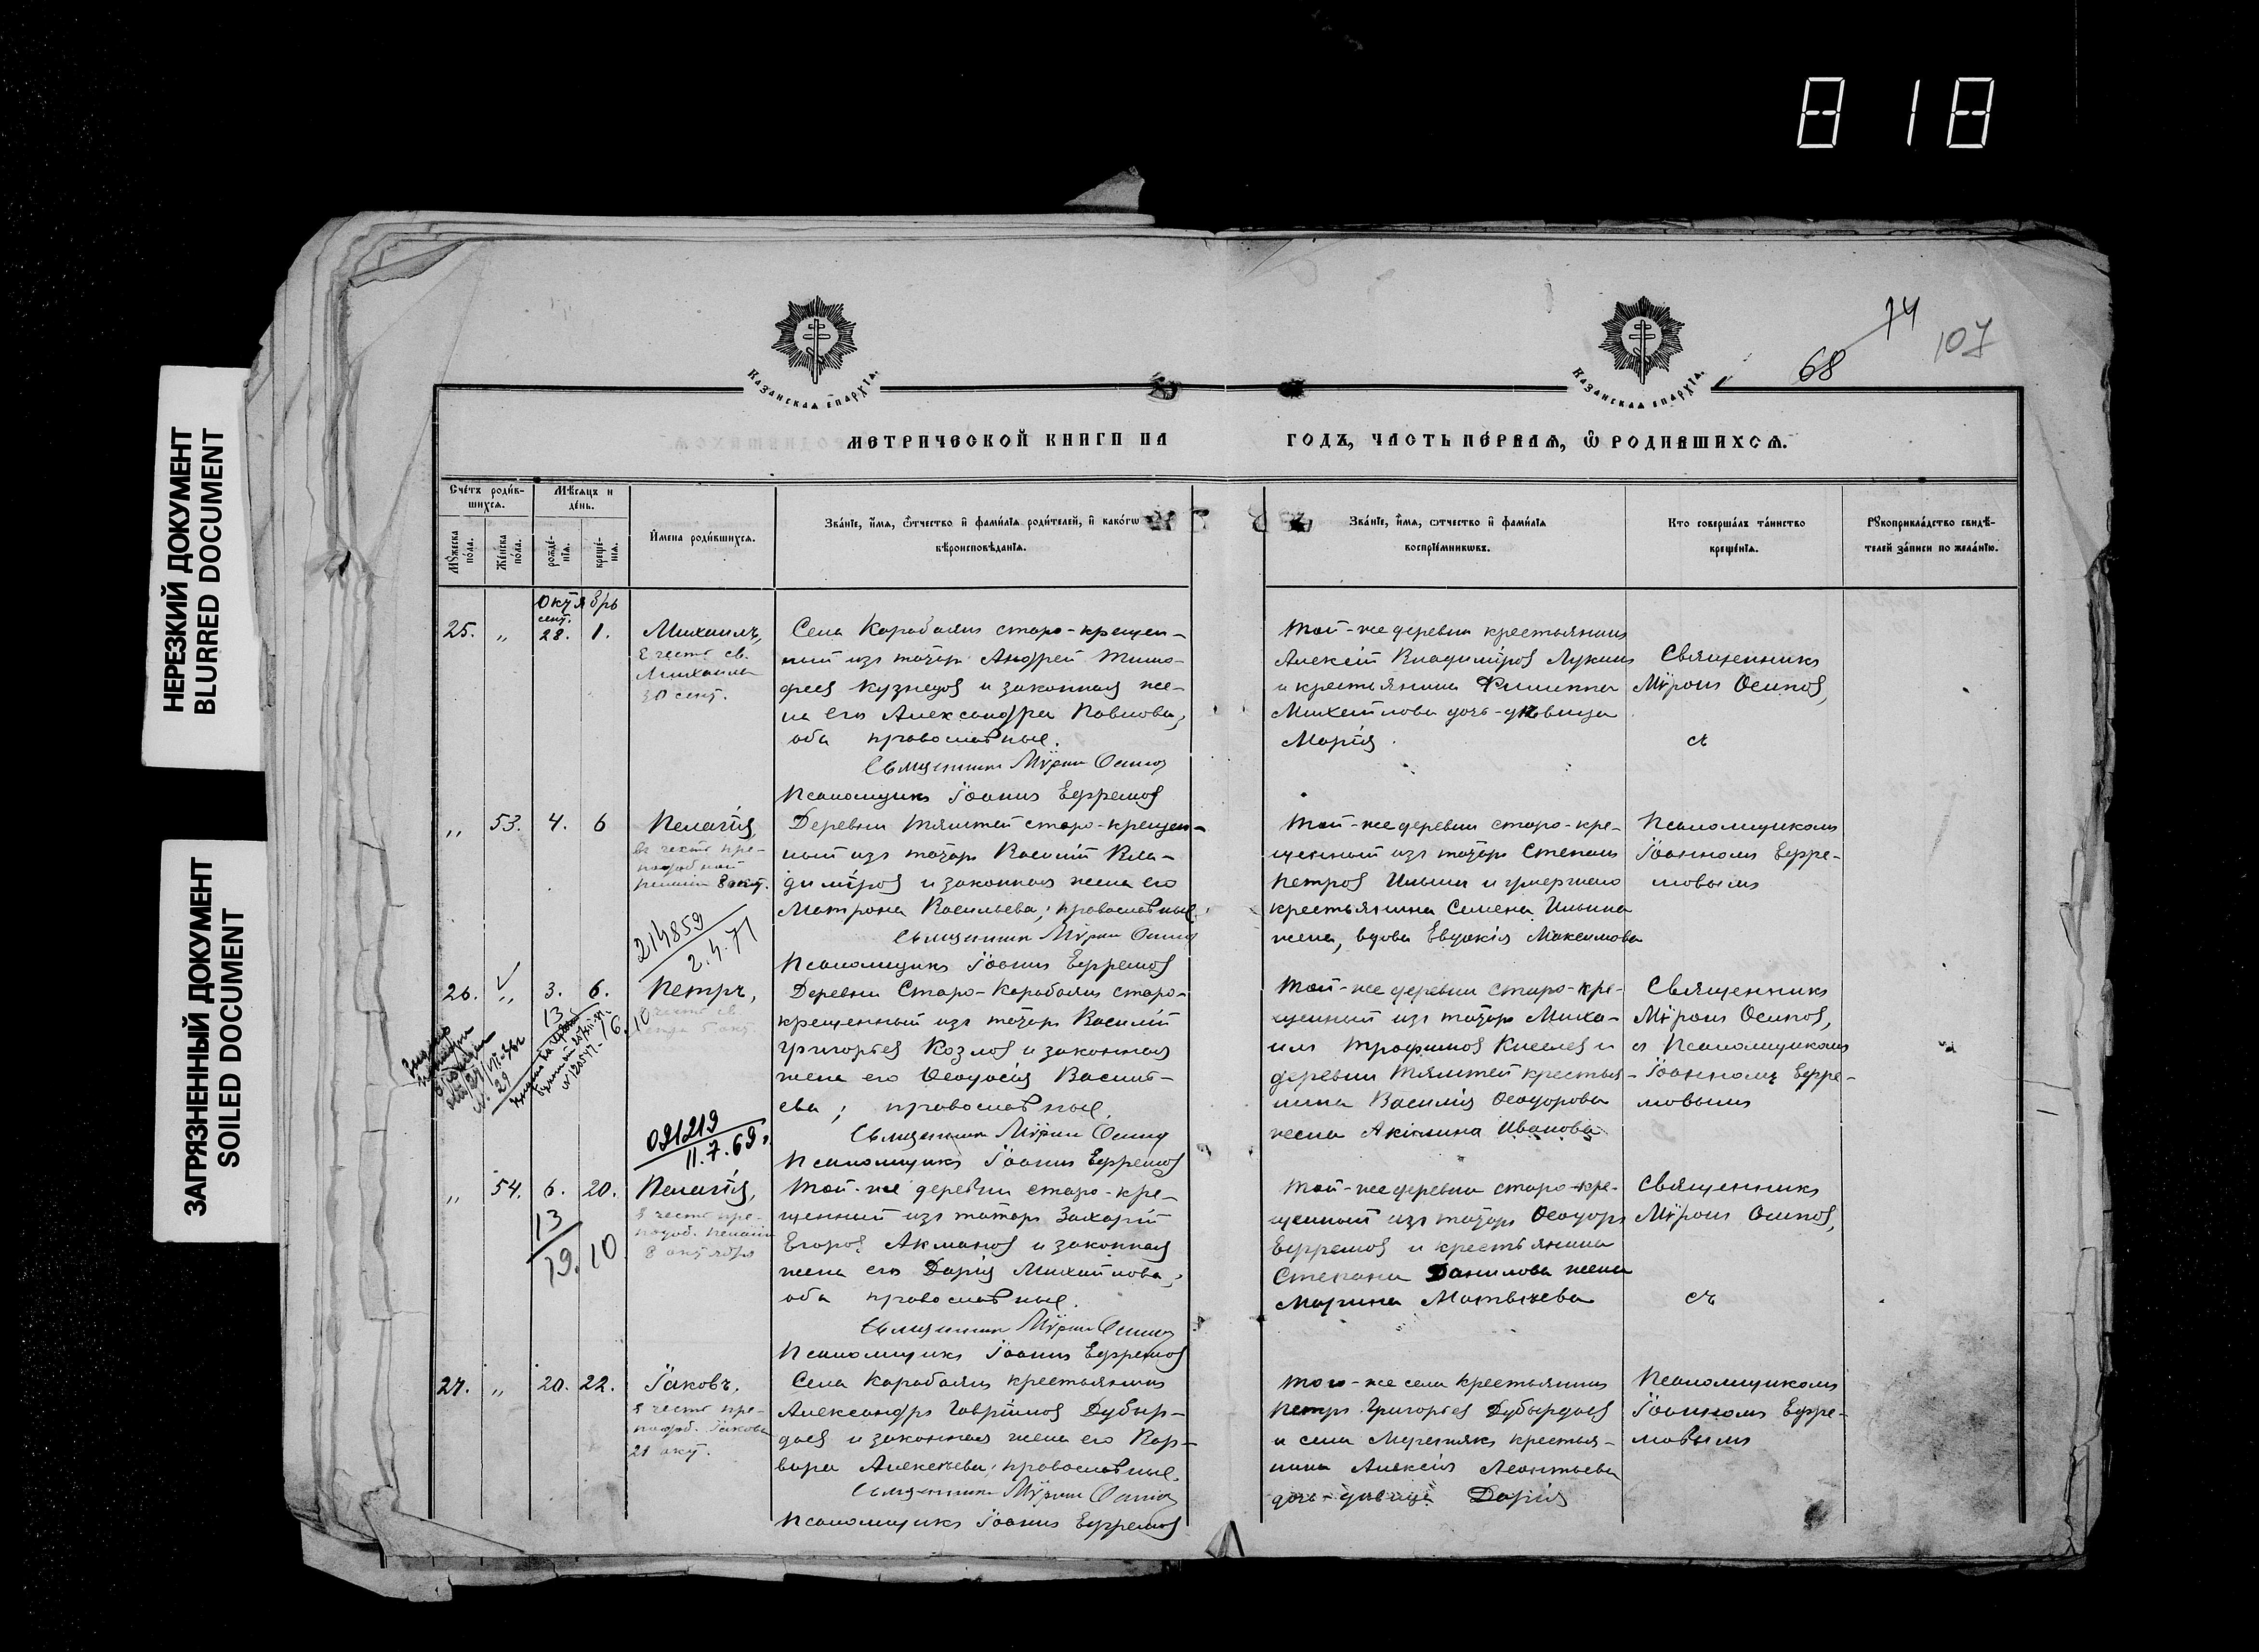 818
НЕРЕЗКИЙ ДОКУМЕНТ
BLURRED DOCUMENT
ЗАГРЯЗНЕННЫЙ ДОКУМЕНТ
SOILED DOCUMENT
74
68
107
Казанская епархїѧ.
Казанская епархїѧ.
МЕТРИЧЕСКОЙ КНИГИ НА
ГОДЪ, ЧАСТЬ ПЕРВАѦ, Ѡ РОДИВШИХСѦ.
Счетъ родив-
шихсѧ.
Мужеска
пола.
Женска
пола.
Мѣсѧцъ и
день.
рожде-
нїѧ.
креще-
нїѧ.
Имена родившихсѧ.
Званїе, имѧ, ѿчество и фамилїѧ родителей, и какогѡ
вѣроисповѣданїѧ.
Званїе, имѧ, ѿчество и фамилїѧ
воспрїемникѡвъ.
Кто совершалъ таинство
крещенїѧ.
Рꙋкоприкладство свидѣ-
телей записи по желанїю.
Октябрь
25. „ сент. 28. 1.
Михаилъ,
въ честь св.
Михаила
30 сент.
Села Карабаянъ старо-крещен-
ный изъ татаръ Андрей Тимо-
феев Кузнецов и законная же-
на его Александра Павлова,
оба православные.
Священникъ Мѵронъ Осипов
Псаломщикъ Іоаннъ Ефремов
Той-же деревни крестьянинъ
Алексѣй Владиміров Лукинъ
и крестьянина Филиппа
Михайлова дочь-дѣвица
Марія.
Священникъ
Мѵронъ Осипов,
съ
„ 53. 4. 6
Пелагія,
въ честь пре-
подобной
Пелагіи 8 окт.
214859
2.4.71
Деревни старо-крещен-
ный изъ татаръ Василій Вла-
диміров и законная жена его
Матрона Васильева; православные.
Священникъ Мѵронъ Осипов
Псаломщикъ Іоаннъ Ефремов
Той-же деревни старо-кре-
щенный изъ татаръ Степанъ
Петров Ильинъ и умершаго
крестьянина Семена Ильина
жена, вдова Евдокія Максимова
Псаломщикомъ
Іоанномъ Ефре-
мовымъ
26. „ 3. 6.
13
16.10
№ 29
№ 120547
Петръ,
091219
11.7.69.
Деревни Старо-Карабаянъ старо-
крещенный изъ татаръ Василій
Григорьев Козлов и законная
жена его Ѳеодосія Василь-
ева; православные.
Священникъ Мѵронъ Осипов
Псаломщикъ Іоаннъ Ефремов
Той-же деревни старо-кре-
щенный изъ татаръ Миха-
илъ Трофимов Киселев и
деревни крестья-
нина Василія Ѳеодорова
жена Акилина Иванова
Священникъ
Мѵронъ Осипов,
съ Псаломщикомъ
Іоанномъ Ефре-
мовымъ
„ 54. 6. 20.
13
19.10
Пелагія,
въ честь пре-
подоб. Пелагіи
8 октября
Той-же деревни старо-кре-
щенный изъ татаръ Захарій
Егоров Акманов и законная
жена его Дарія Михайлова;
оба православные.
Священникъ Мѵронъ Осипов
Псаломщикъ Іоаннъ Ефремов
Той-же деревни старо-кре-
щенный изъ татаръ Ѳеодоръ
Ефремов и крестьянина
Степана Данилова жена
Марина Матвѣева
Священникъ
Мѵронъ Осипов,
съ
27. „ 20. 22.
Іаковъ,
въ честь пре-
подоб. Іакова
21 окт.
Села Карабаянъ крестьянинъ
Александръ Гаврилов Дубыр-
даев и законная жена его Вар-
вара Алексѣева; православные.
Священникъ Мѵронъ Осипов
Псаломщикъ Іоаннъ Ефремов
Того-же села крестьянинъ
Петръ Григорьев Дубырдаев
и села крестья-
нина Алексія Леонтьева
дочь-дѣвица Дарія
Псаломщикомъ
Іоанномъ Ефре-
мовымъ